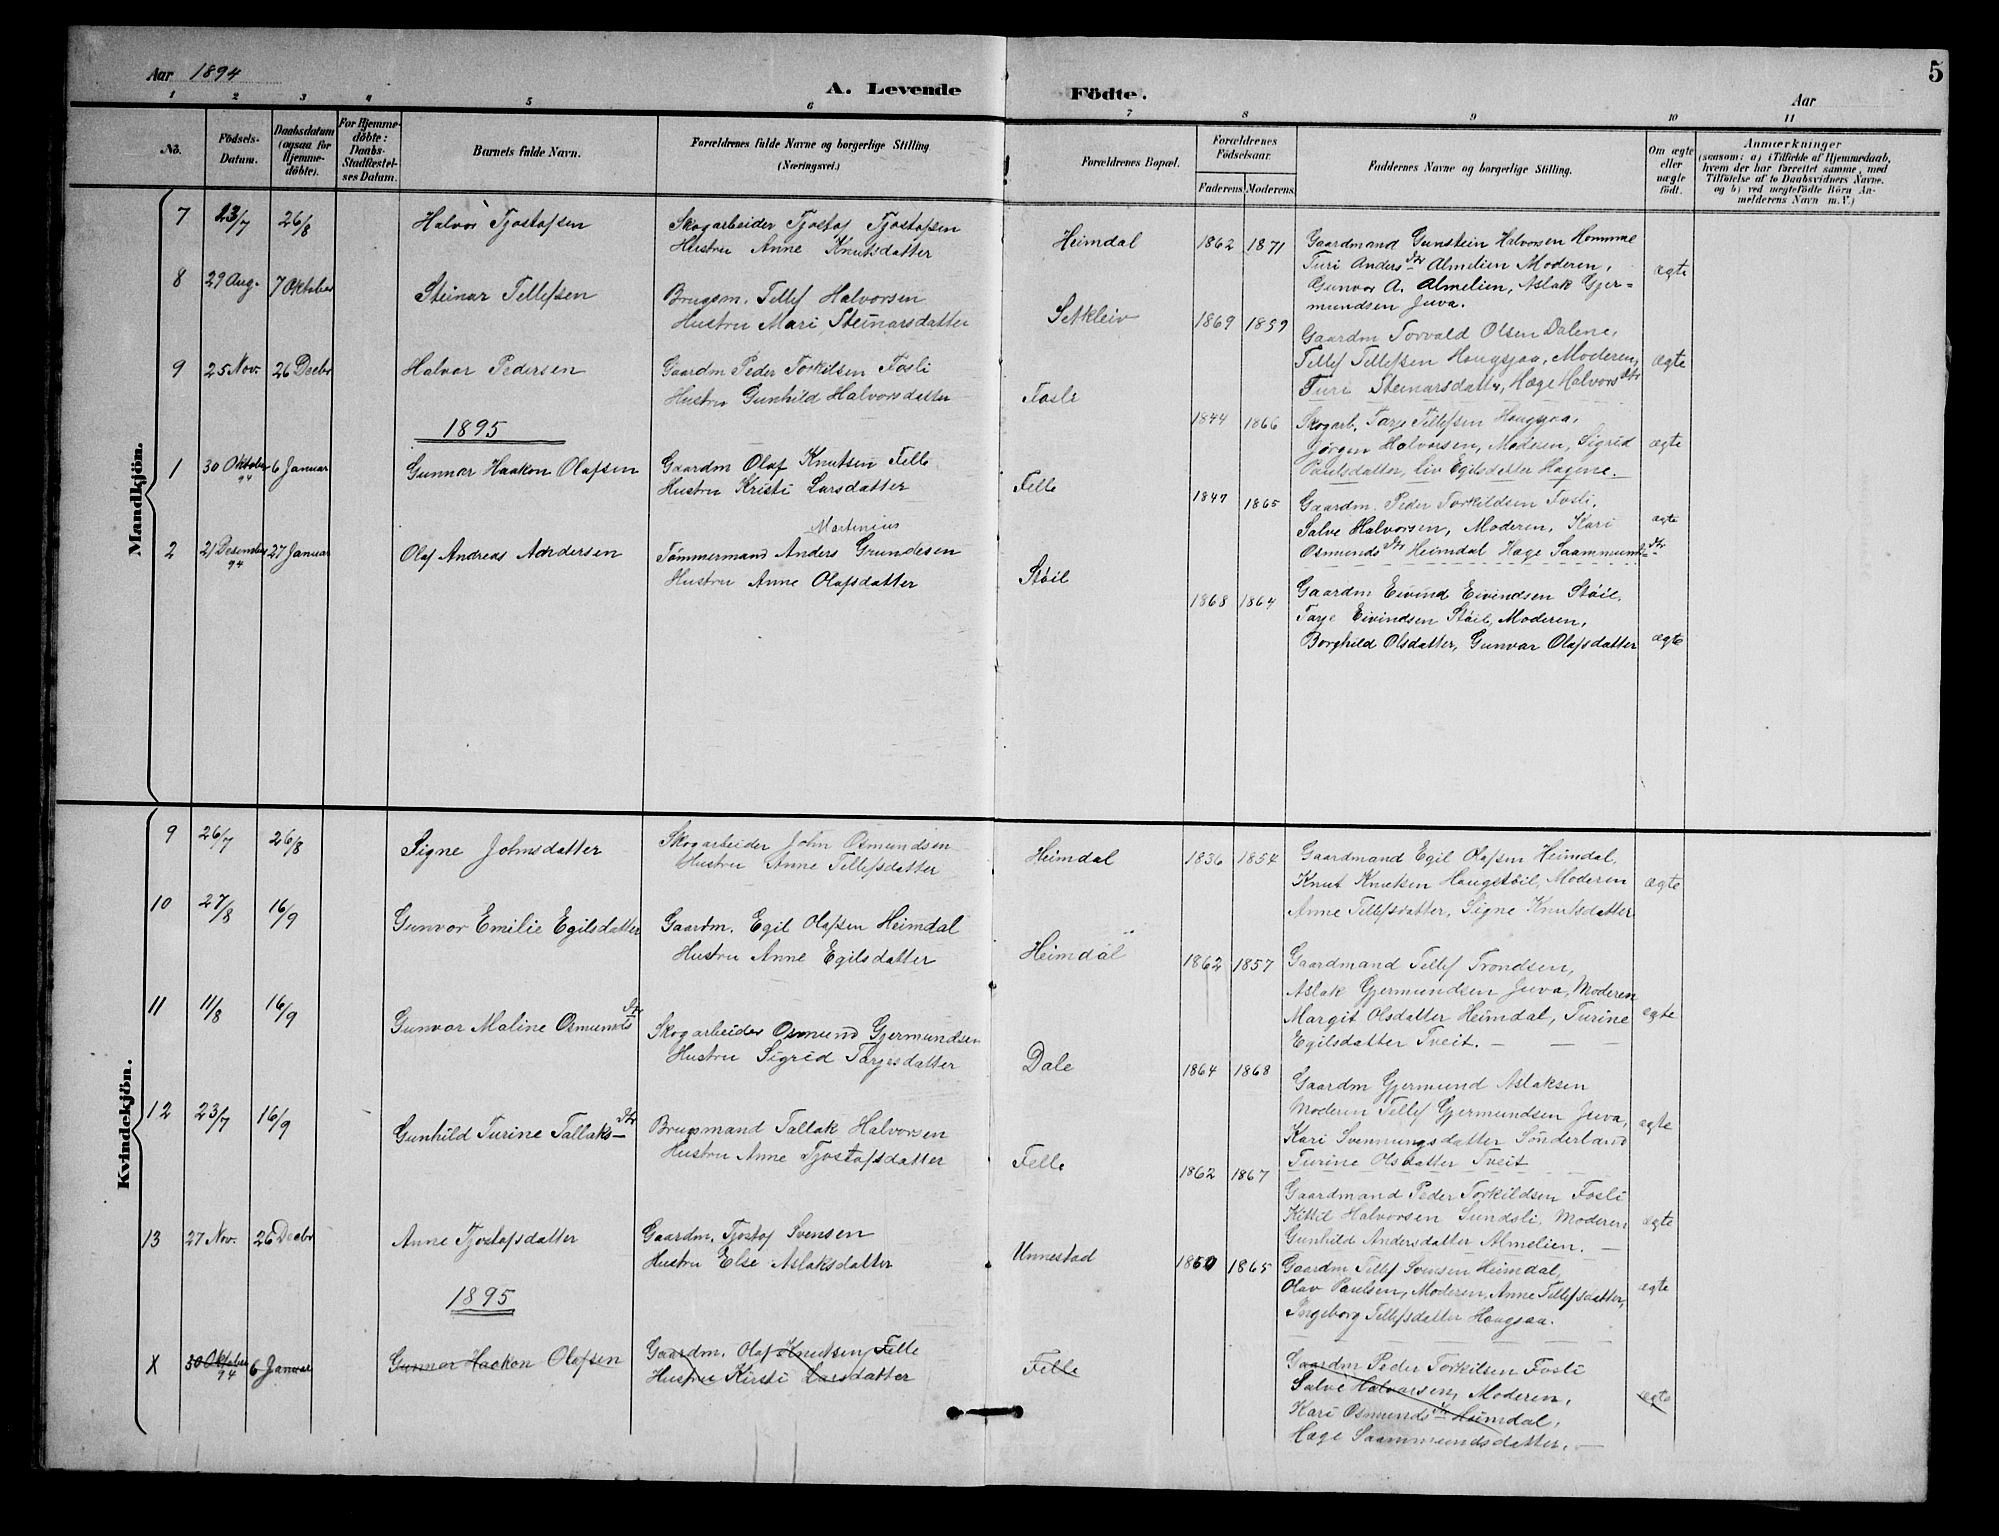 5
Aar 1894
A. Levende Födte.
Aar
1 2 3 4 5 6 7 8 9 10 11
No.
Födsels-Datum.
Daabsdatum (ogsaa for Hjemme-döbte).
For Hjemme-döbte: Daabs-Stadfæstel-ses Datum.
Barnets fulde Navn.
Forældrenes fulde Navne og borgerlige Stilling (Næringsvei.)
Forældrenes Bopæl.
Forældrenes Födselsaar.
Faderens. Moderens.
Faddernes Navne og borgerlige Stilling.
Om ægte eller uægte födt.
Anmærkninger
(saasom: a) i Tilfælde af Hjemmedaab,
hvem der har forrettet samme, med
Tilföielse af to Daabsvidners Navne.
og b) ved uægtefödte Börn An-
melderens Navn m.V.)
Mandkjön.
7 23/7 26/8 Halvor Tjostofsen
Skogarbeider Tjostof Tjostofsen
Hustru Anne Knutsdatter
Heimdal 1862 1871
Gaardmand Gunstein Halvorsen Homme
Turi Anders dtr Almelien Moderen,
Gunvor A. Almelien, Aslak Gjer-
mundsen Juva.
ægte
8 29 Aug. 7 Oktober Steinar Tellefsen
Brugsm. Tellef Halvorsen
Hustru Mari Steinarsdatter
Setkleiv 1869 1859
Gaardm Torvald Olsen Dalene,
Tellef Tellefsen Hougsjaa, Moderen,
Turi Steinarsdattr, Hæge Halvors dtr
ægte
9 25 Nov. 26 Decbr Halvor Pedersen
Gaardm Peder Torkilsen Fosli
Hustru Gunhild Halvorsdatter
Fosli 1844 1866
Skogarb. Tarje Tellefsen Hougsjaa,
Jörgen Halvorsen, Moderen, Sigrid
Paulsdatter, Liv Egilsdatter Hagene.
ægte
1895
1 30 Oktober 94 6 Januar Gunnar Haakon Olafsen
Gaardm Olaf Knutsen Felle
Hustru Kristi Larsdatter
Felle 1847 1865
Gaardm. Peder Torkildsen Fosli,
Salve Halvorsen, Moderen, Kari
Osmunds dtr Heimdal Hæge Saammunds dtr
ægte
2 21 Desember 94 27 Januar Olaf Andreas Andersen
Martinius
Tømmermand Anders Grundesen
Hustru Anne Olafsdatter
Støil 1868 1864
Gaardm Eivind Eivindsen Støil,
Tarje Eivindsen Støil, Moderen,
Borghild Olsdatter, Gunvor Olafsdatter
ægte
Kvindekjön.
9 26/7 26/8 Signe Johnsdatter
Skogarbeider John Osmundsen
Hustru Anne Tellefsdatter
Heimdal 1836 1854
Gaardmand Egil Olafsen Heimdal,
Knut Knutsen Hougstöil, Moderen
Anne Tellefsdatter, Signe Knutsdatter
ægte
10 27/8 16/9 Gunvor Emilie Egilsdatter
Gaardm. Egil Olafsen Heimdal
Hustru Anne Egilsdatter
Heimdal 1862 1857
Gaardmand Tellef Trondsen,
Aslak Gjermundsen Juva, Moderen
Margit Olsdatter Heimdal, Turine
Egilsdatter Tveit.
ægte
11 11/8 16/9 Gunvor Maline Osmunds dtr
Skogarbeider Osmund Gjermundsen
Hustru Sigrid Tarjesdatter
Dale 1864 1868
Gaardm Gjermund Aslaksen
Moderen Tellef Gjermundsen Juva,
Kari Svenningsdatter Sönderland
Turine Olsdatter Tveit
ægte
12 23/7 16/9 Gunhild Turine Tallaks dtr
Brugsmand Tallak Halvorsen
Hustru Anne Tjostofsdatter
Felle 1862 1867
Gaardmand Peder Torkildsen Fosli
Kittil Halvorsen Sundsli, Moderen
Gunhild Andersdatter Almelien.
ægte
13 27 Nov. 26 Decbr Anne Tjostofsdatter
Gaardm, Tjostof Svensen
Hustru Else Aslaksdatter
Unnestad 1860 1865
Gaardm Tellef Svensen Heimdal,
Olav Paulsen, Moderen, Anne Tellefsdatter,
Ingeborg Tellefsdatter Hougsaa.
ægte
1895
X 30 Oktober 94 6 Januar Gunnar Haakon Olafsen
Gaardm. Olaf Knutsen Felle
Hustru Kirsti Larsdatter
Felle
Gaardm Peder Torkilsen Fosli
Salve Halvorsen, Moderen,
Kari Osmunds dtr Heimdal,
Hæge Saammundsdatter.
ægte